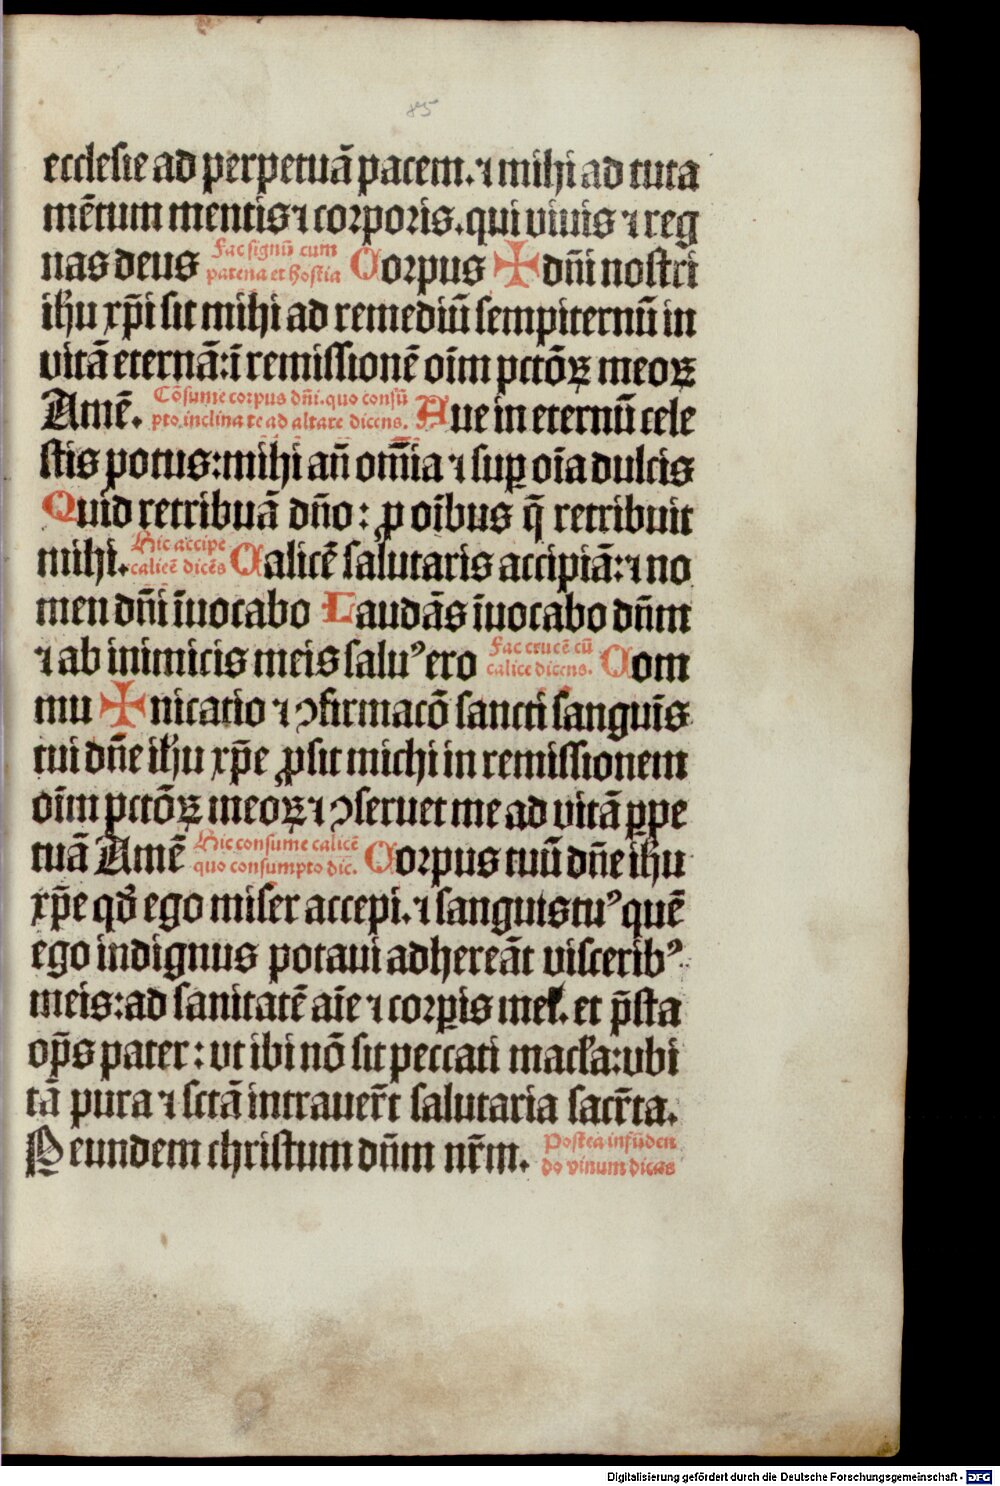 85
ecclesie ad perpetuā pacem. ⁊ mihi ad tuta
mētum mentis ⁊ corporis. qui viuis ⁊ reg
nas deus Fac signū cum
patena et hostia Corpus ✠ dn̄i nostri
ihu xp̄i sit mihi ad remediū sempiternū in
vitā eternā: ī remissionē oīm pctōꝝ meoꝝ
Amē. Cōsume corpus dn̄i. quo consū
pto inclina te ad altare dicens. Aue in eternū cele
stis potus: mihi an̄ om̄ia ⁊ suꝑ oīa dulcis
Quid retribuā dn̄o: ꝓ oībus q̄ retribuit
mihi. Hic accipe
calicē dicēs Calicē salutaris accipiā: ⁊ no
men dn̄i īuocabo Laudās īuocabo dn̄m
⁊ ab inimicis meis saluꝰ ero Fac crucē cū
calice dicens. Com
mu ✠ nicatio ⁊ ꝯfirmacō sancti sanguīs
tui dn̄e ihu xp̄e ꝓsit michi in remissionem
oīm pctōꝝ meoꝝ ⁊ ꝯseruet me ad vitā ꝑpe
tuā Amē Hic consume calicē
quo consumpto dic. Corpus tuū dn̄e ihu
xp̄e qd̄ ego miser accepi. ⁊ sanguis tuꝰ quē
ego indignus potaui adhereāt visceribꝰ
meis: ad sanitatē aīe ⁊ corꝑis mei. et p̄sta
op̄s pater: vt ibi nō sit peccati macła: vbi
tā pura ⁊ sctā intrauer̄t salutaria sacr̄ta.
Ꝑ eundem christum dn̄m nr̄m. Postea infūden
do vinum dicas
Digitalisierung gefördert durch die Deutsche Forschungsgemeinschaft - DFG